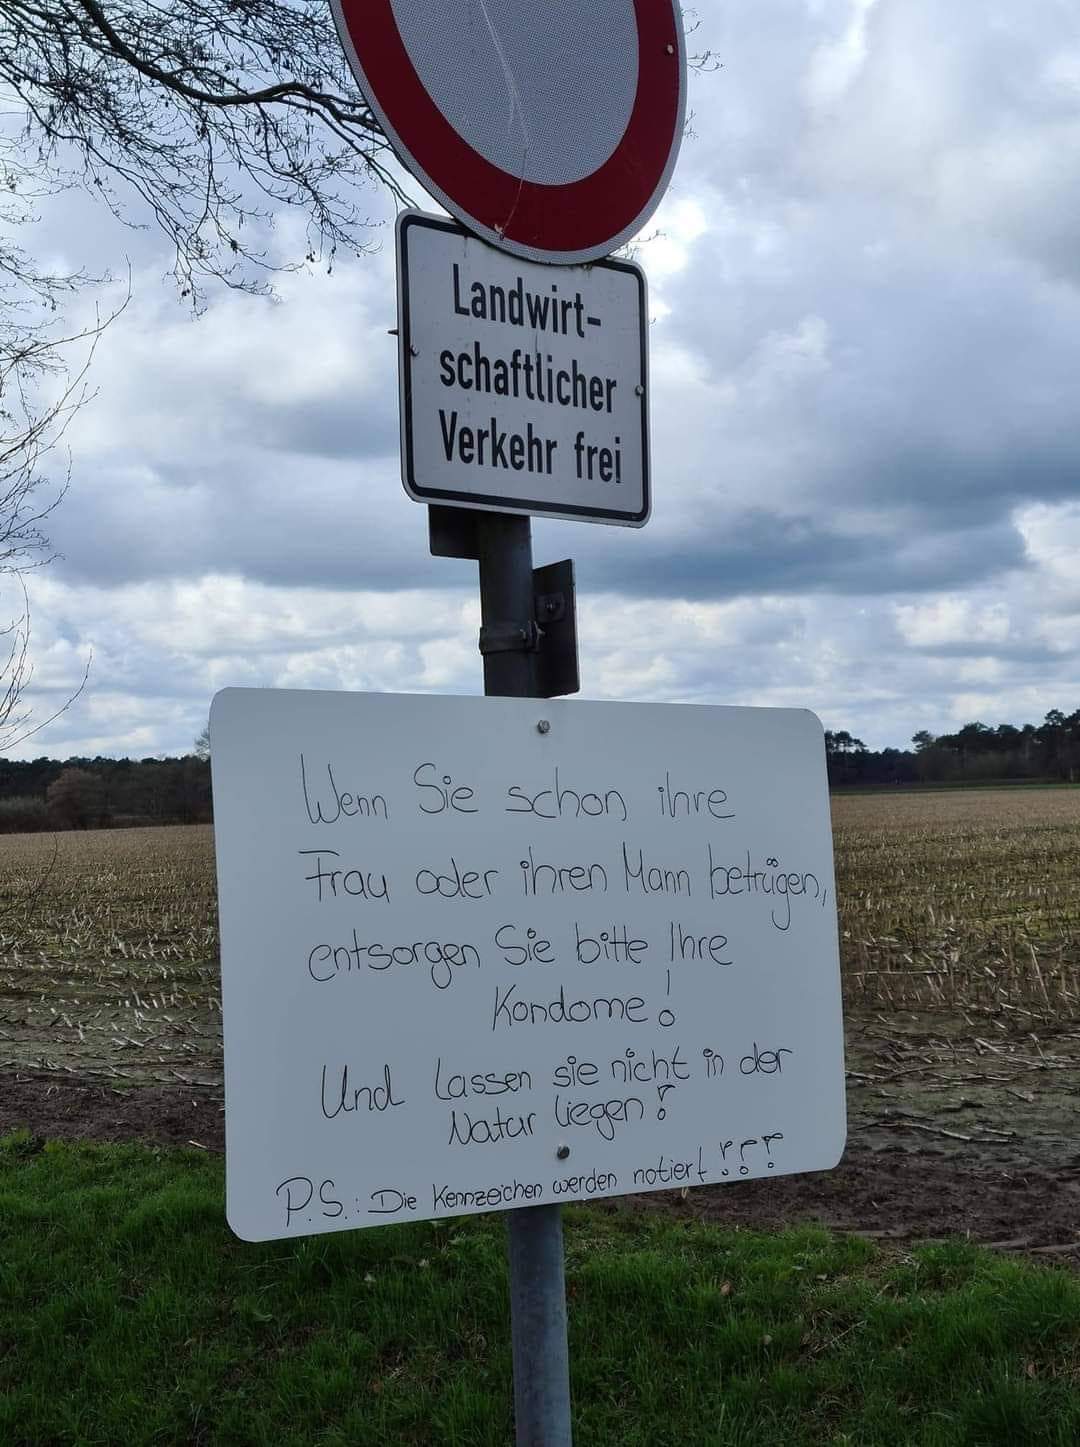 Landwirt-
schaftlicher
Verkehr frei
Wenn Sie schon ihre
Frau oder ihren Mann betrügen,
entsorgen Sie bitte Ihre
Kondome!
Und lassen sie nicht in der
Natur liegen!
P.S.: Die Kennzeichen werden notiert!!!